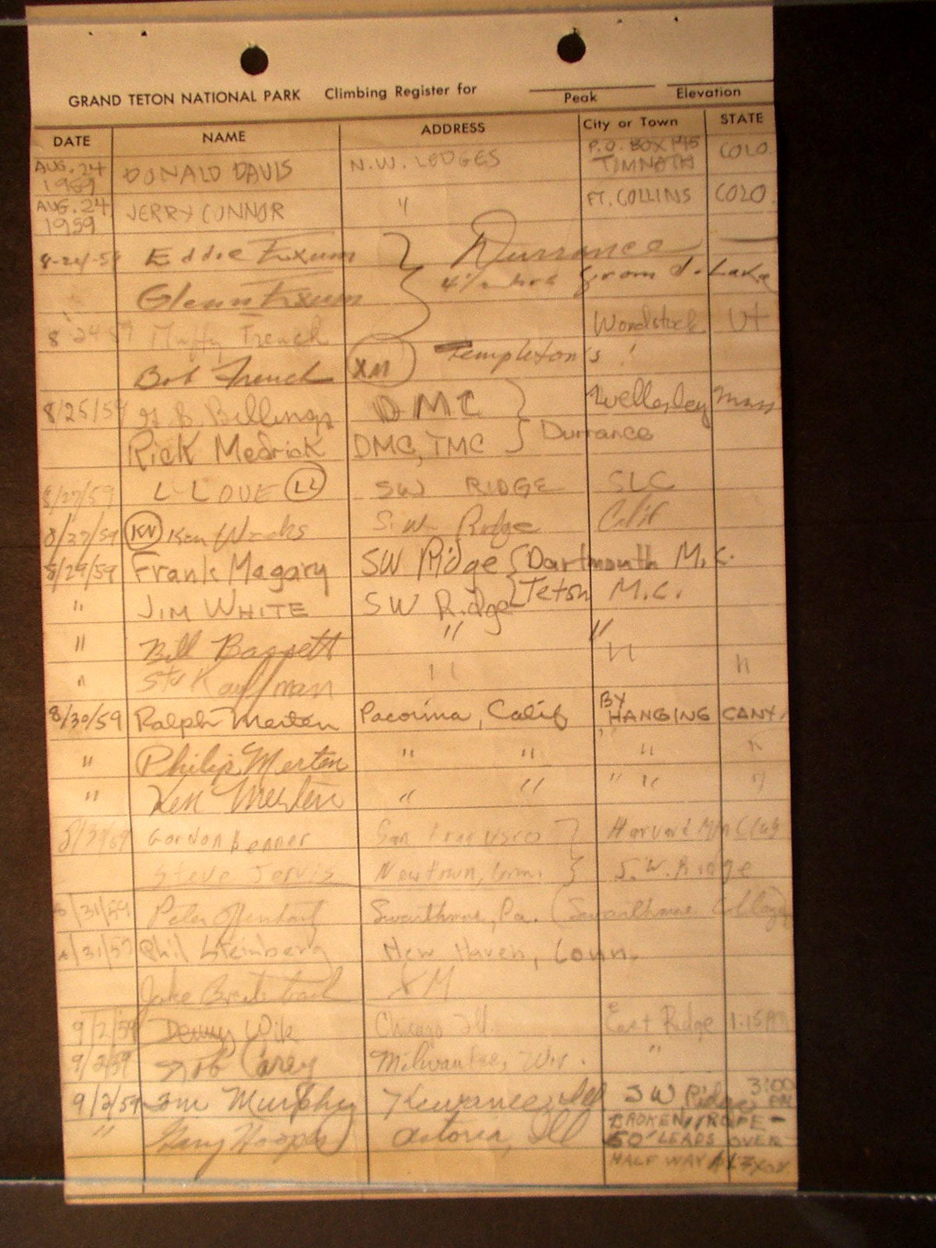 GRAND TETON NATIONAL PARK Climbing Register for
Peak Elevation
DATE NAME ADDRESS City or Town STATE
AUG. 24 1959 DONALD DAVIS N.W. LODGES P.O. BOX 145 TIMNATH COLO
AUG. 24 1959 JERRY CONNOR " FT. COLLINS COLO.
8-24-59 Eddie Exum } Durrance
Glenn Exum 4½ hrs from d. Lake
8 24 59 Muffy French Woodstock Vt
Bob French XM Templeton's !
8/25/59 B. Billings DMC } Wellesley Mass
Rick Medrick DMC, TMC } Durrance
8/27/59 L LOVE LL SW RIDGE SLC
8/27/59 KW Ken S.W. Ridge Calif
8/29/59 Frank Magary SW Ridge { Dartmouth M.C.
" JIM WHITE SW Ridge { Teton M.C.
" Bill Bassett " "
" Stu Kauffman " " "
8/30/59 Ralph Merten Pacoima, Calif BY HANGING CANY.
" Philip Merten " " " "
" Ken Merten " " " " "
Gordon Benner San Francisco } Harvard Mtn Club
Steve Jervis Newtown, Conn. } S.W. Ridge
8/31/59 Peter Swarthmore, Pa. (Swarthmore College)
8/31/59 Phil Steinberg New Haven, Conn.
Jake Breitenbach XM
9/2/59 Denny Wilk Chicago Ill. East Ridge 1:15
9/2/59 Bob Carey Milwaukee, Wis. "
9/3/59 Jim Murphy Kewanee Ill SW Ridge 3:00 PM
" Gary Hooper Astoria, Ill BROKEN ROPE -
50' LEADS OVER
HALF WAY